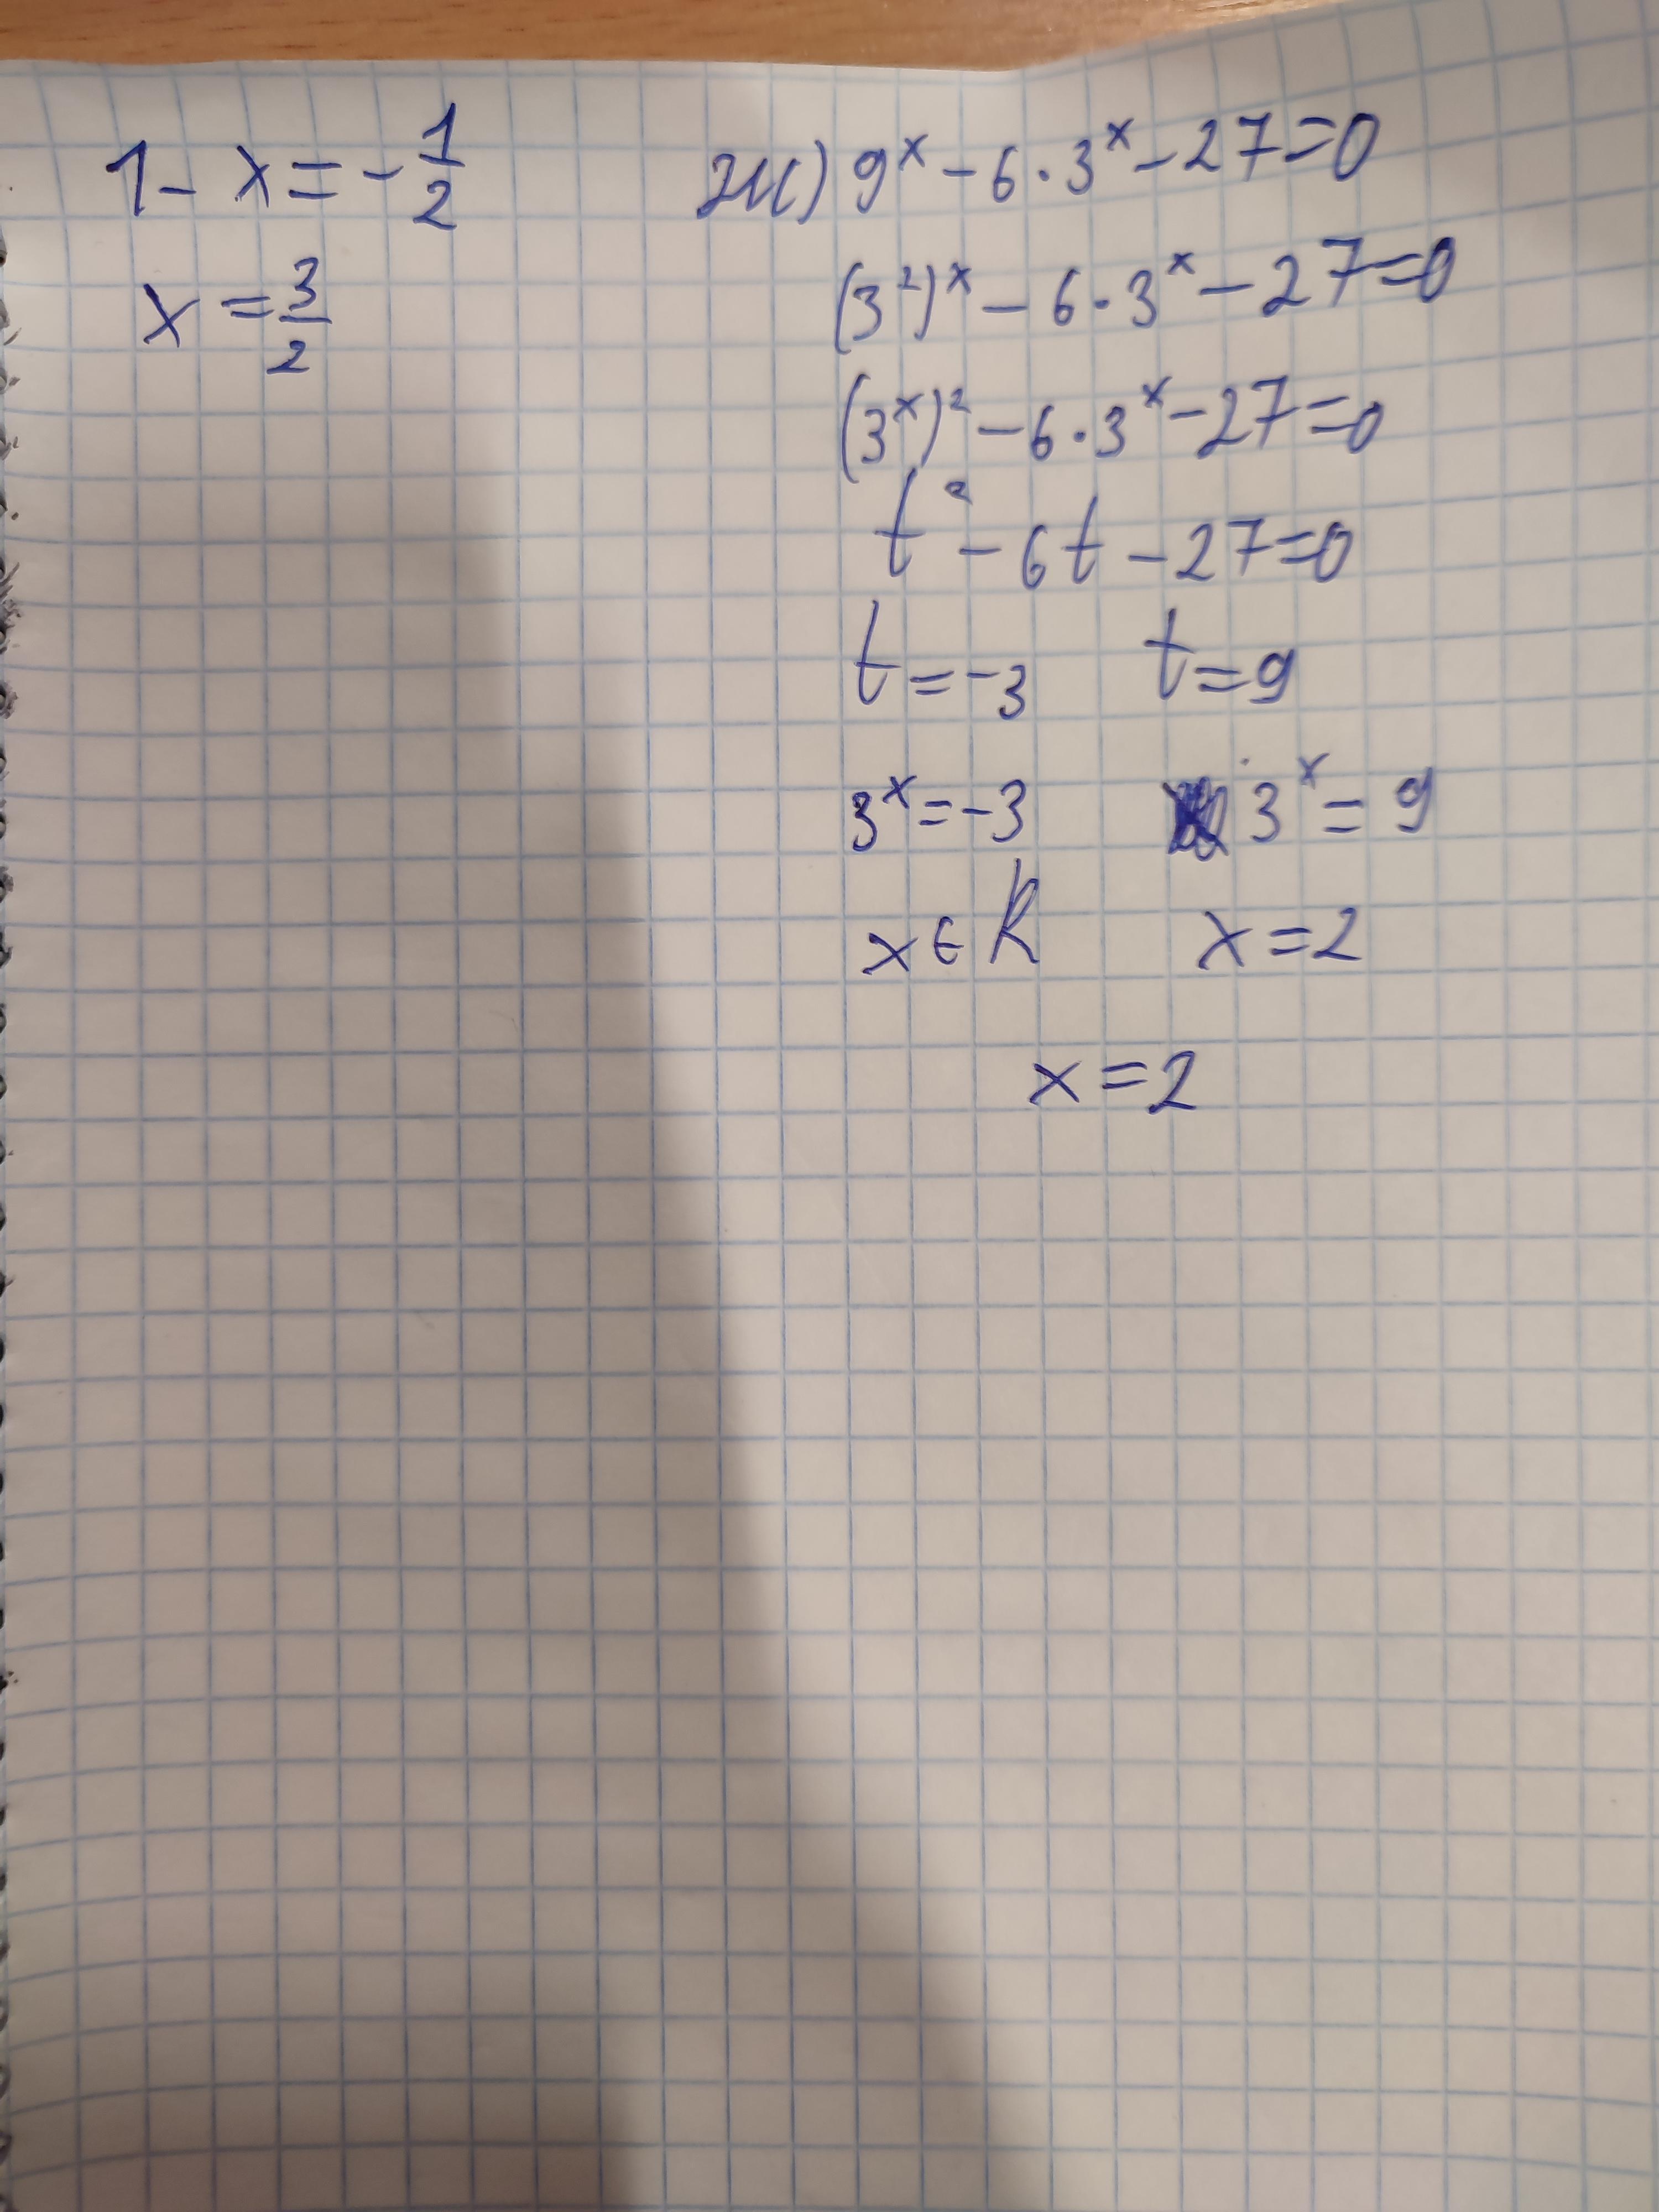 1 - x = -1/2
x = 3/2
9ˣ - 6 · 3ˣ - 27 = 0
(3²)ˣ - 6 · 3ˣ - 27 = 0
(3ˣ)² - 6 · 3ˣ - 27 = 0
t² - 6t - 27 = 0
t = -3 t = 9
3ˣ = -3 3ˣ = 9
x ∈ R x = 2
x = 2